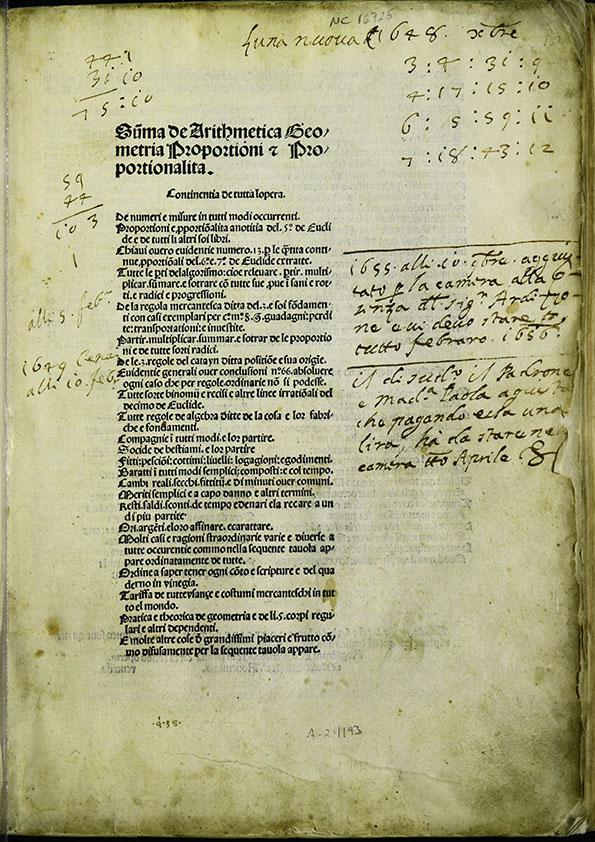 NC 16725
Luna nuova 1648. Xbre
3 : 4 : 31 : 9
4 : 17 : 15 : 10
6 : 5 : 59 : 11
7 : 18 : 43 : 12
44 1
31 10
75 : 10
Sũma de Arithmetica Geo/
metria Proportioni ⁊ Pro/
portionalita.
Continentia de tutta lopera.
De numeri e misure in tutti modi occurrenti.
Proportioni e ꝓportiõalita anotitia del.5º de Eucli
de e de tutti li altri soi libri.
Chiaui ouero euidentie numero.13.ꝑ le q̃tita conti
nue ꝓportiõali del.6º e.7º de Euclide extratte.
Tutte le ꝑti delalgorismo: cioe releuare.ꝑtir.multi
plicar.sũmare.e sotrare cõ tutte sue ꝓue ĩ sani e rot
ti.e radici e progressioni.
De la regola mercantesca ditta del.3.e soi fõdamen
ti con casi exemplari per guadagni: perdi
te: transportationi: e inuestite.
Partir.multiplicar.summar.e sotrar de le proportio
ni e de tutte sorti radici.
De le.3.regole del catayn ditta positiõe e sua origie.
Euidentie generali ouer conclusioni nº66.absoluere
ogni caso che per regole ordinarie nõ si podesse.
Tutte sorte binomii e recisi e altre linee irratiõali del
decimo de Euclide.
Tutte regole de algebra ditte de la cosa e lor fabri/
che e fondamenti.
Compagnie ĩ tutti modi.e lor partire.
Socide de bestiami.e lor partire
Fitti: pesciõi: cottimi: liuelli: logagioni: egodimenti.
Baratti ĩ tutti modi semplici: composti: e col tempo.
Cambi reali.secchi.fittitii.e diminuti ouer comuni.
Meriti semplici e a capo danno e altri termini.
Resti.saldi.sconti.de tempo edenari e la recare a un
di ĩ piu partite
Ori.argẽti.e loro affinare.e carattare.
Molti casi e ragioni straordinarie varie e diuerse a
tutte occurentie commo nella sequente tauola ap/
pare ordinatamente de tutte.
Ordine a saper tener ogni cõto e scripture e del qua
derno in vinegia.
Tariffa de tutte vsançe e costumi mercanteschi in tut
to el mondo.
Pratica e theorica de geometria e de li.5.corpi regu
lari e altri dependenti.
E molte altre cose ď grandissimi piaceri e frutto cõ/
mo difusamente per la sequente tauola appare.
59
44
10 3
1
alli 5. febº
1649
alli 10. febº
1655. alli 10. Xbre
la camera alla
Sigr
ne e ui deuo stare
tutto febraro. 1656.
il Padrone
e madª Paola
che pagando una
lira, hà da stare ne
camera Aprile
A-2-1193